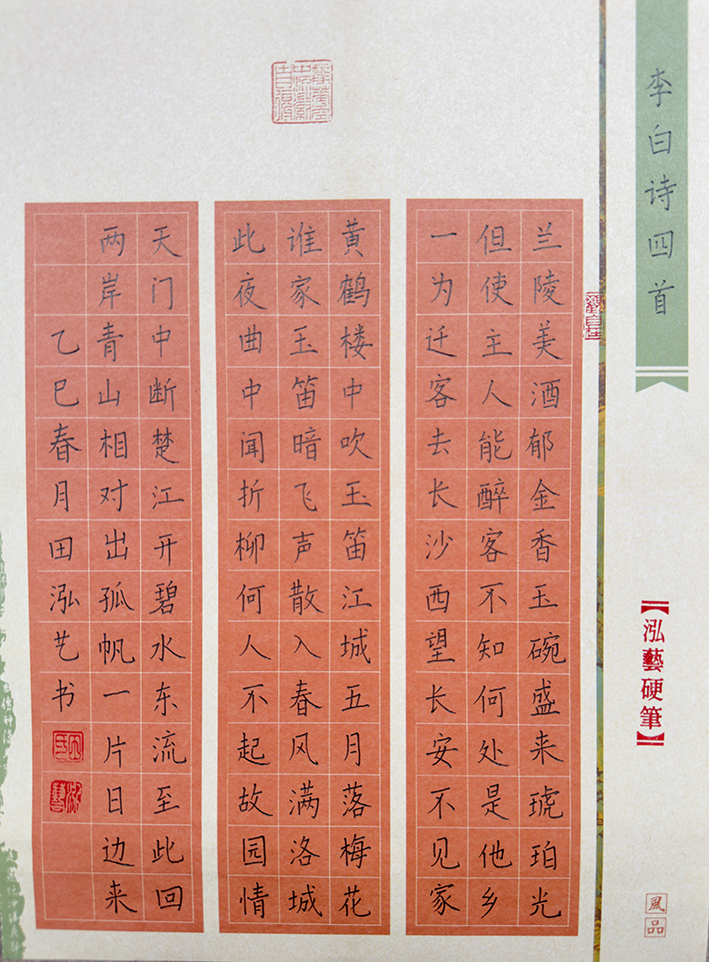 李白诗四首
兰陵美酒郁金香玉碗盛来琥珀光
但使主人能醉客不知何处是他乡
一为迁客去长沙西望长安不见家
黄鹤楼中吹玉笛江城五月落梅花
谁家玉笛暗飞声散入春风满洛城
此夜曲中闻折柳何人不起故园情
天门中断楚江开碧水东流至此回
两岸青山相对出孤帆一片日边来
乙巳春月田泓艺书
【泓藝硬筆】
風品